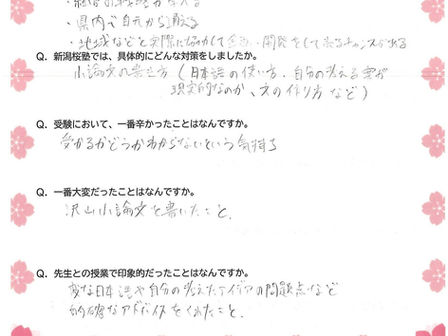 ・県内で自元から通える
・地域などと実際に協力して企画・開発をして来るチャンスがある
Q. 新潟桜塾では、具体的にどんな対策をしましたか。
小論文の書き方（日本語の使い方、自分の考える案が
現実的なのか、文の作り方 など）
Q. 受験において、一番辛かったことはなんですか。
受かるかどうかわからないという気持ち
Q. 一番大変だったことはなんですか。
沢山小論文を書いたこと、
Q. 先生との授業で印象的だったことはなんですか。
変な日本語や自分の考えたアイデアの問題点など
的確なアドバイスをくれたこと、